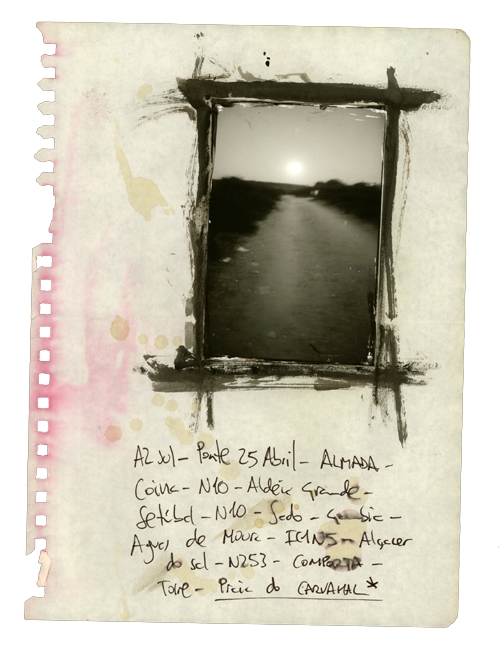 A2 sul - Ponte 25 Abril - ALMADA -
Coina - N10 - Aldeia Grande -
Setúbal - N10 - Sado - Gambia -
Aguas de Moura - IC1N5 - Algacer
do sal - N253 - COMPORTA -
Torre - Praia do CARVALHAL*